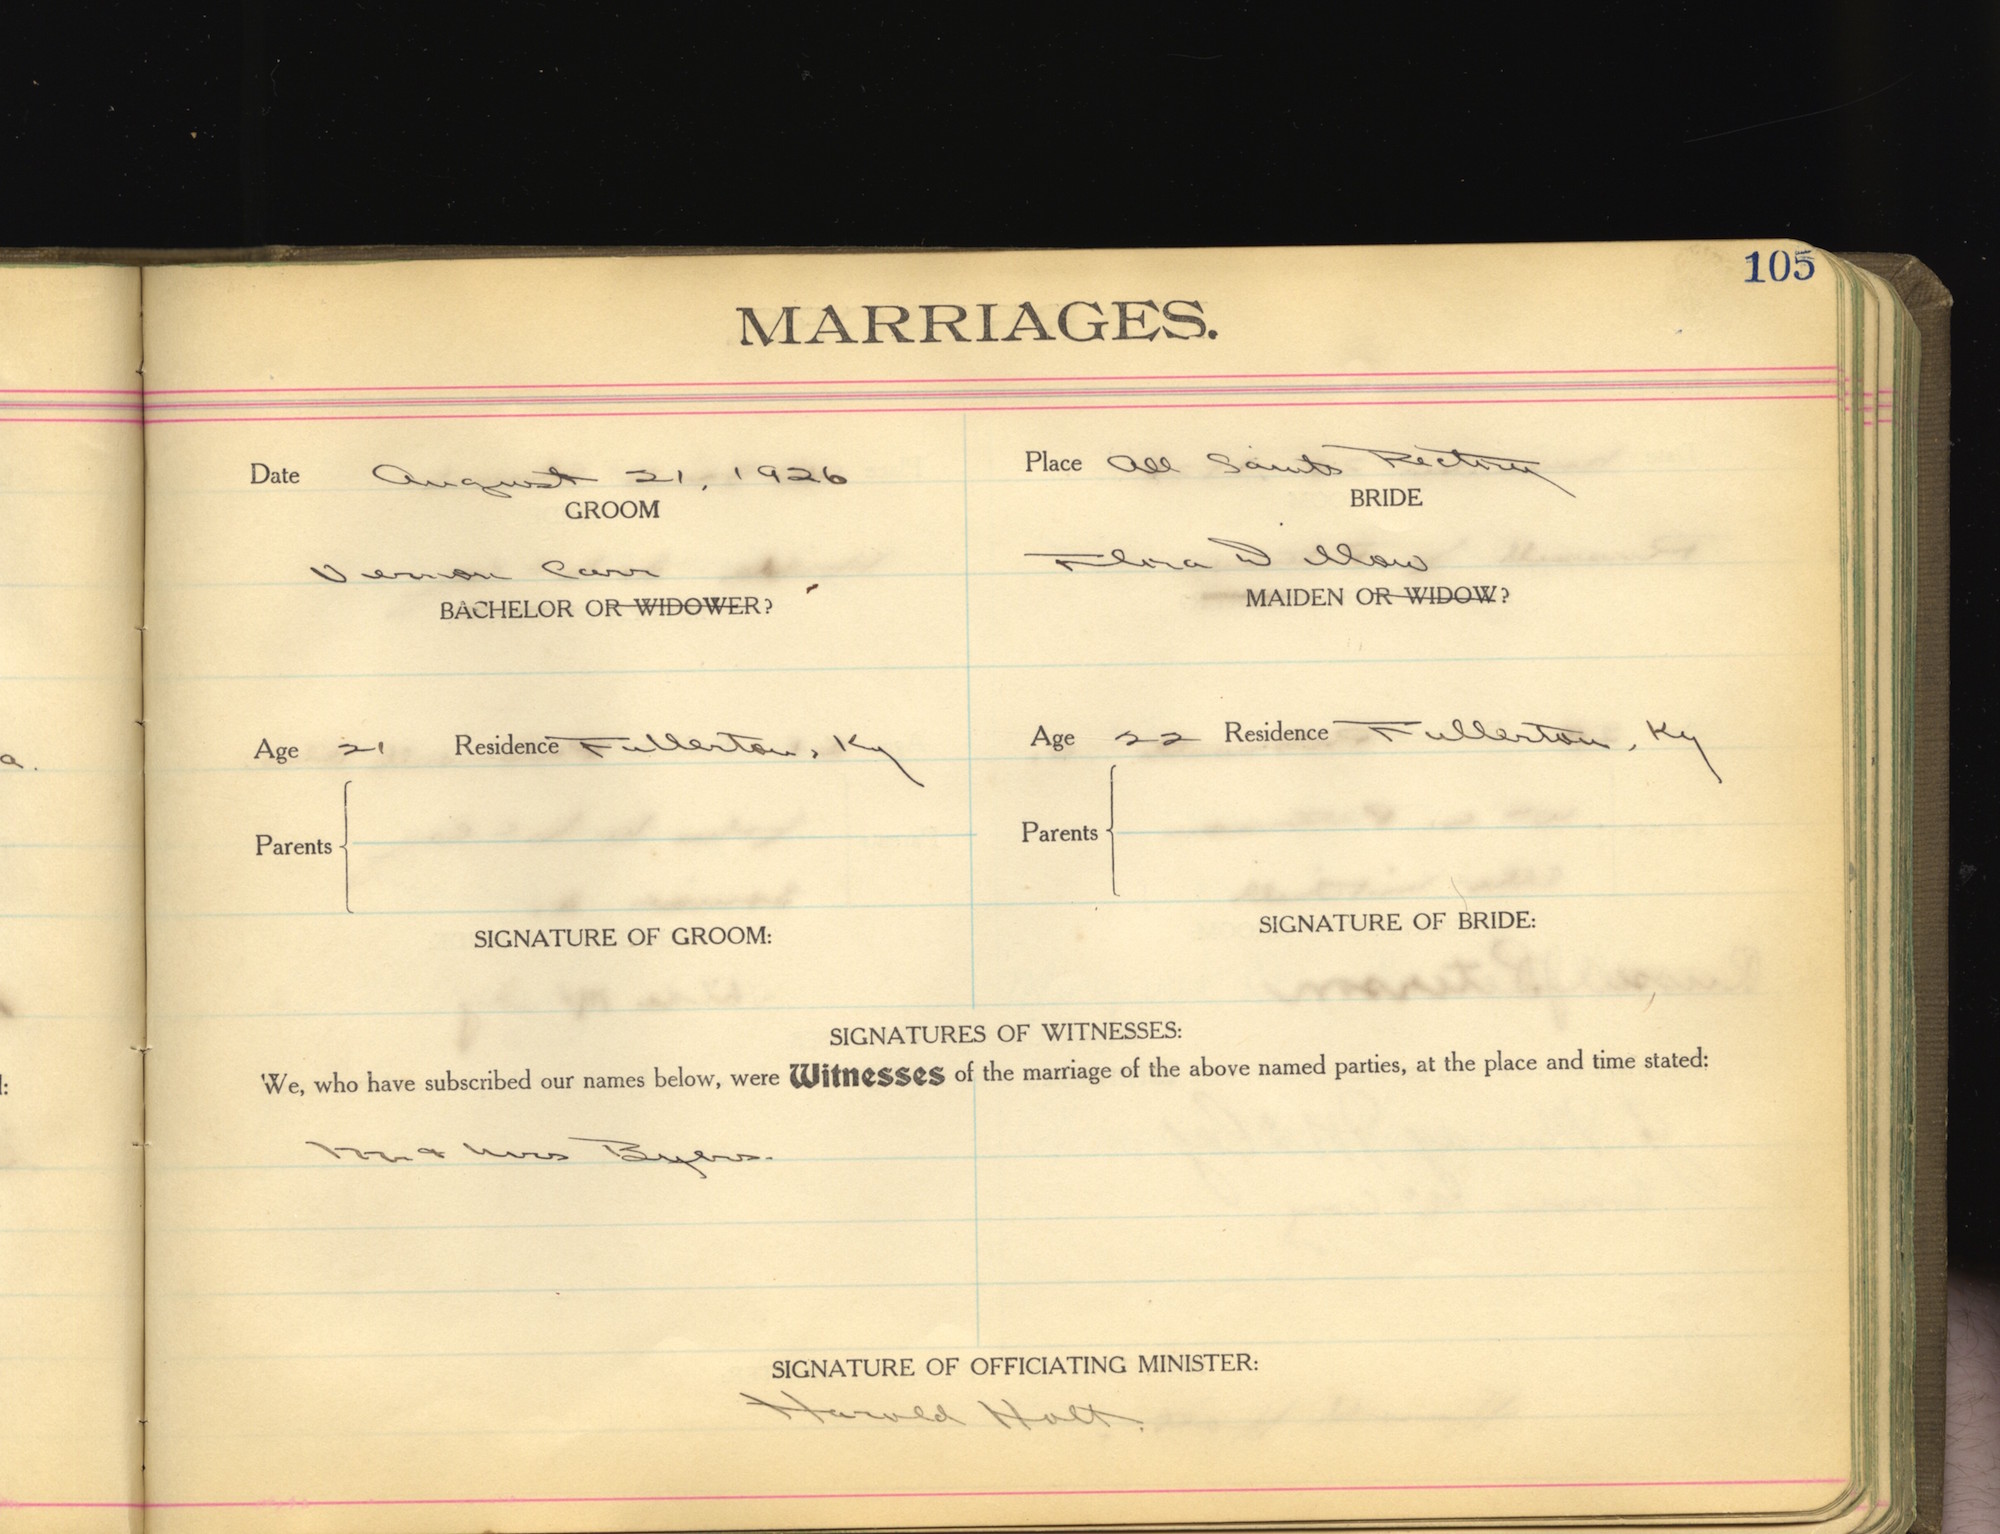 105
MARRIAGES.
Date August 21, 1926
Place All Saints Rectory
GROOM
BRIDE
Vernon Carr
Flora D
BACHELOR OR WIDOWER?
MAIDEN OR WIDOW?
Age 21 Residence Fullerton, Ky
Age 22 Residence Fullerton, Ky
Parents
Parents
SIGNATURE OF GROOM:
SIGNATURE OF BRIDE:
SIGNATURES OF WITNESSES:
We, who have subscribed our names below, were Witnesses of the marriage of the above named parties, at the place and time stated:
Mr & Mrs Byers.
SIGNATURE OF OFFICIATING MINISTER:
Harold Holt.